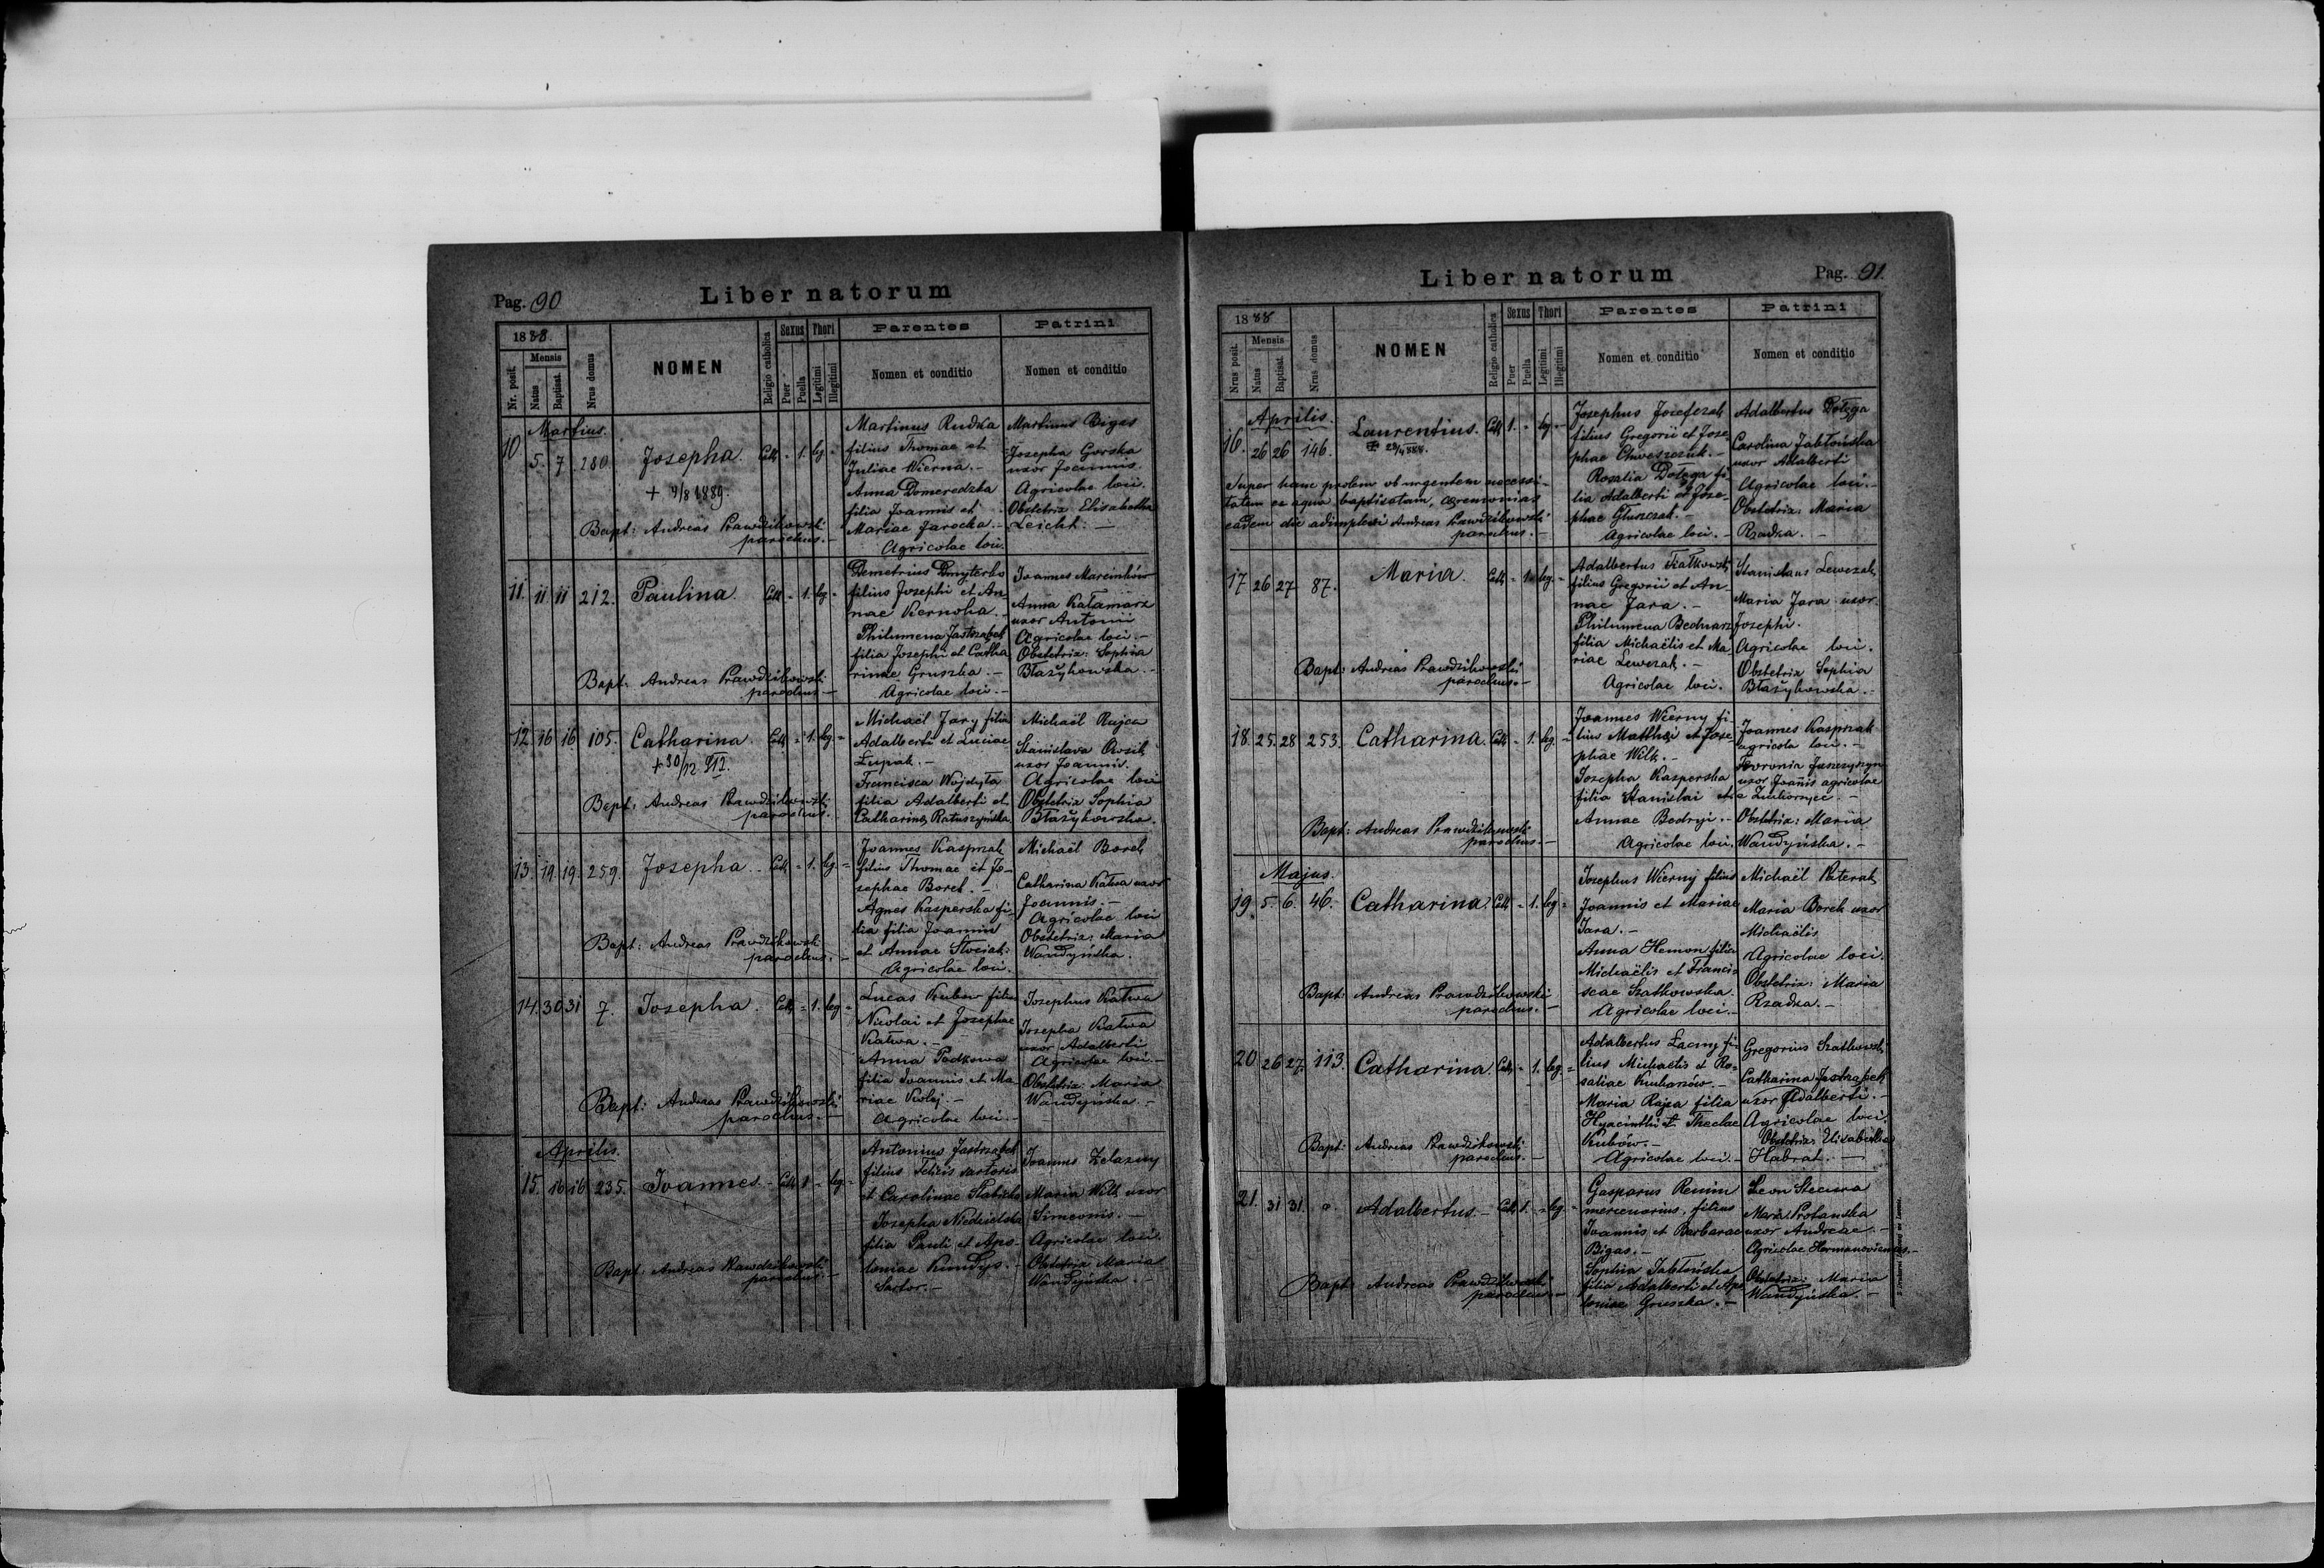 Pag. 90
Liber natorum
1888
Nr. posit.
Mensis
Natus
Baptisat.
Nrus domus
NOMEN
Religio catholica
Sexus
Puer
Puella
Thori
Legitimi
Illegitimi
Parentes
Nomen et conditio
Patrini
Nomen et conditio
Martius.
10. 5. 7 280 Josepha. Cath - 1. leg. -
+ 9/8 1889.
Bapt: Andreas Prawdzikowski
parochus. -
Martinus Rudka
filius Thomae et
Juliae Wierna. -
Anna Domeredzka
filia Joannis et
Mariae Jarocka. -
Agricolae loci.
Martinus Bigas
Josepha Gorska
uxor Joannis.
Agricolae loci.
Obstetrix Elisabetha
Leicht. -
11. 11 11 212. Paulina. Cath - 1. leg. -
Bapt: Andreas Prawdzikowski
parochus -
Demetrius Dmyterko
filius Josephi et An
nae Kernoha. -
Philumena Jastrzabek
filia Josephi et Catha
rinae Gruszka. -
Agricolae loci. -
Joannes Marcinków
Anna Kałamarz
uxor Antonii
Agricolae loci. -
Obstetrix: Sophia
Błażykowska. -
12. 16 16 105. Catharina. Cath - 1. leg. -
+ 30/12
Bapt: Andreas Prawdzikowski
parochus.
Michaël Jary filius
Adalberti et Luciae
Łupak. -
Francisca Wojdyła
filia Adalberti et
Catharinae Ratuszyńska.
Michaël Rajca
Stanislava
uxor Joannis.
Agricolae loci
Obstetrix Sophia
Błażykowska.
13. 19. 19. 259. Josepha. Cath - 1. leg. -
Bapt: Andreas Prawdzikowski
parochus. -
Joannes Kasprzak
filius Thomae et Jo-
sephae Borek. -
Agnes Kasperska fi-
lia filia Joannis
et Annae
Agricolae loci.
Michaël Borek
Catharina Katwa uxor
Joannis. -
Agricolae loci
Obstetrix: Maria
Wandyńska.
14. 30 31 7. Josepha. Cath - 1. leg -
Bapt: Andreas Prawdzikowski
parochus. -
Lucas Kubów filius
Nicolai et Josephae
Katwa. -
Anna Podkowa
filia Joannis et Ma-
riae Kolej. -
Agricolae loci. -
Josephus Katwa
Josepha Katwa
uxor Adalberti
Agricolae loci. -
Obstetrix: Maria
Wandyńska. -
Aprilis.
15. 16 16 235. Joannes. - Cath 1 - leg -
Bapt: Andreas Prawdzikowski
parochus. -
Antonius Jastrzabek
filius Felicis sartoris
et Carolinae
Josepha Niedzielska
filia Pauli et Apo-
loniae Kundys. -
Sartor. -
Joannes Żelazny
Maria Wilk uxor
Simeonis. -
Agricolae loci.
Obstetrix Maria
Wandyńska. -
Liber natorum
Pag. 91.
1888
Nrus posit.
Mensis
Natus
Baptisat.
Nrus domus
NOMEN
Religio catholica
Sexus
Puer
Puella
Thori
Legitimi
Illegitimi
Parentes
Nomen et conditio
Patrini
Nomen et conditio
Aprilis.
16. 26 26 146. Laurentius. Cath 1. - leg -
Super hanc prolem ob urgentem necessi-
tatem ex aqua baptisatam, ceremonias
eadem die adimplevi Andreas Prawdzikowski
parochus. -
Josephus Józefczak
filius Gregorii et Jose-
phae Chweszczuk. -
Rosalia Dołęga fi-
lia Adalberti et Jose-
phae Gluszak. -
Agricolae loci. -
Adalbertus Dołęga
Carolina Jabłońska
uxor Adalberti
Agricolae loci. -
Obstetrix: Maria
Rzadka. -
17 26 27 87. Maria. Cath - 1. leg. -
Bapt: Andreas Prawdzikowski
parochus. -
Adalbertus Fiałkowski
filius Gregorii et An-
nae Jara. -
Philumena Bednarz
filia Michaëlis et Ma
riae Lewczak. -
Agricolae loci.
Stanislaus Lewczak
Maria Jara uxor
Josephi.
Agricolae loci.
Obstetrix Sophia
Błażykowska. -
18. 25. 28 253. Catharina. Cath - 1. leg. -
Bapt: Andreas Prawdzikowski
parochus. -
Joannes Wierny fi-
lius Matthei et Jose-
phae Wilk. -
Josepha Kasperska
filia Stanislai et
Annae Bedryj. -
Agricolae loci.
Joannes Kasprzak
agricola loci. -
Fevronia Janczyszyn
uxor Joannis agricolae
e
Obstetrix: Maria
Wandyńska. -
Majus.
19. 5. 6. 46. Catharina. Cath - 1. leg. -
Bapt: Andreas Prawdzikowski
parochus. -
Josephus Wierny filius
Joannis et Mariae
Jara. -
Anna Hemon filia
Michaëlis et Francis
scae Szatkowska.
Agricolae loci. -
Michaël Katerak
Maria Borek uxor
Michaëlis
Agricolae loci.
Obstetrix: Maria
Rzadka. -
20 26 27. 113. Catharina. Cath - 1. leg. -
Bapt: Andreas Prawdzikowski
parochus. -
Adalbertus Lacny fi-
lius Michaelis et Ro-
saliae Kucharzów. -
Maria Rajca filia
Hyacinthi et Theclae
Kubów. -
Agricolae loci. -
Gregorius Szatkowski
Catharina Jastrzabek
uxor Adalberti. -
Agricolae loci.
Obstetrix: Elisabetha
Habrat. -
21. 31 31. Adalbertus. - Cath 1. - leg. -
Bapt: Andreas Prawdzikowski
parochus. -
Gasparus Remin
mercenarius, filius
Joannis et Barbarae
Bigas. -
Sophia Jabłońska
filia Adalberti et Apo
loniae Gruszka. -
Leon Stecura
Maria Protanska
uxor Andreae. -
Agricolae Hermanovicenses. -
Obstetrix: Maria
Wandyńska. -